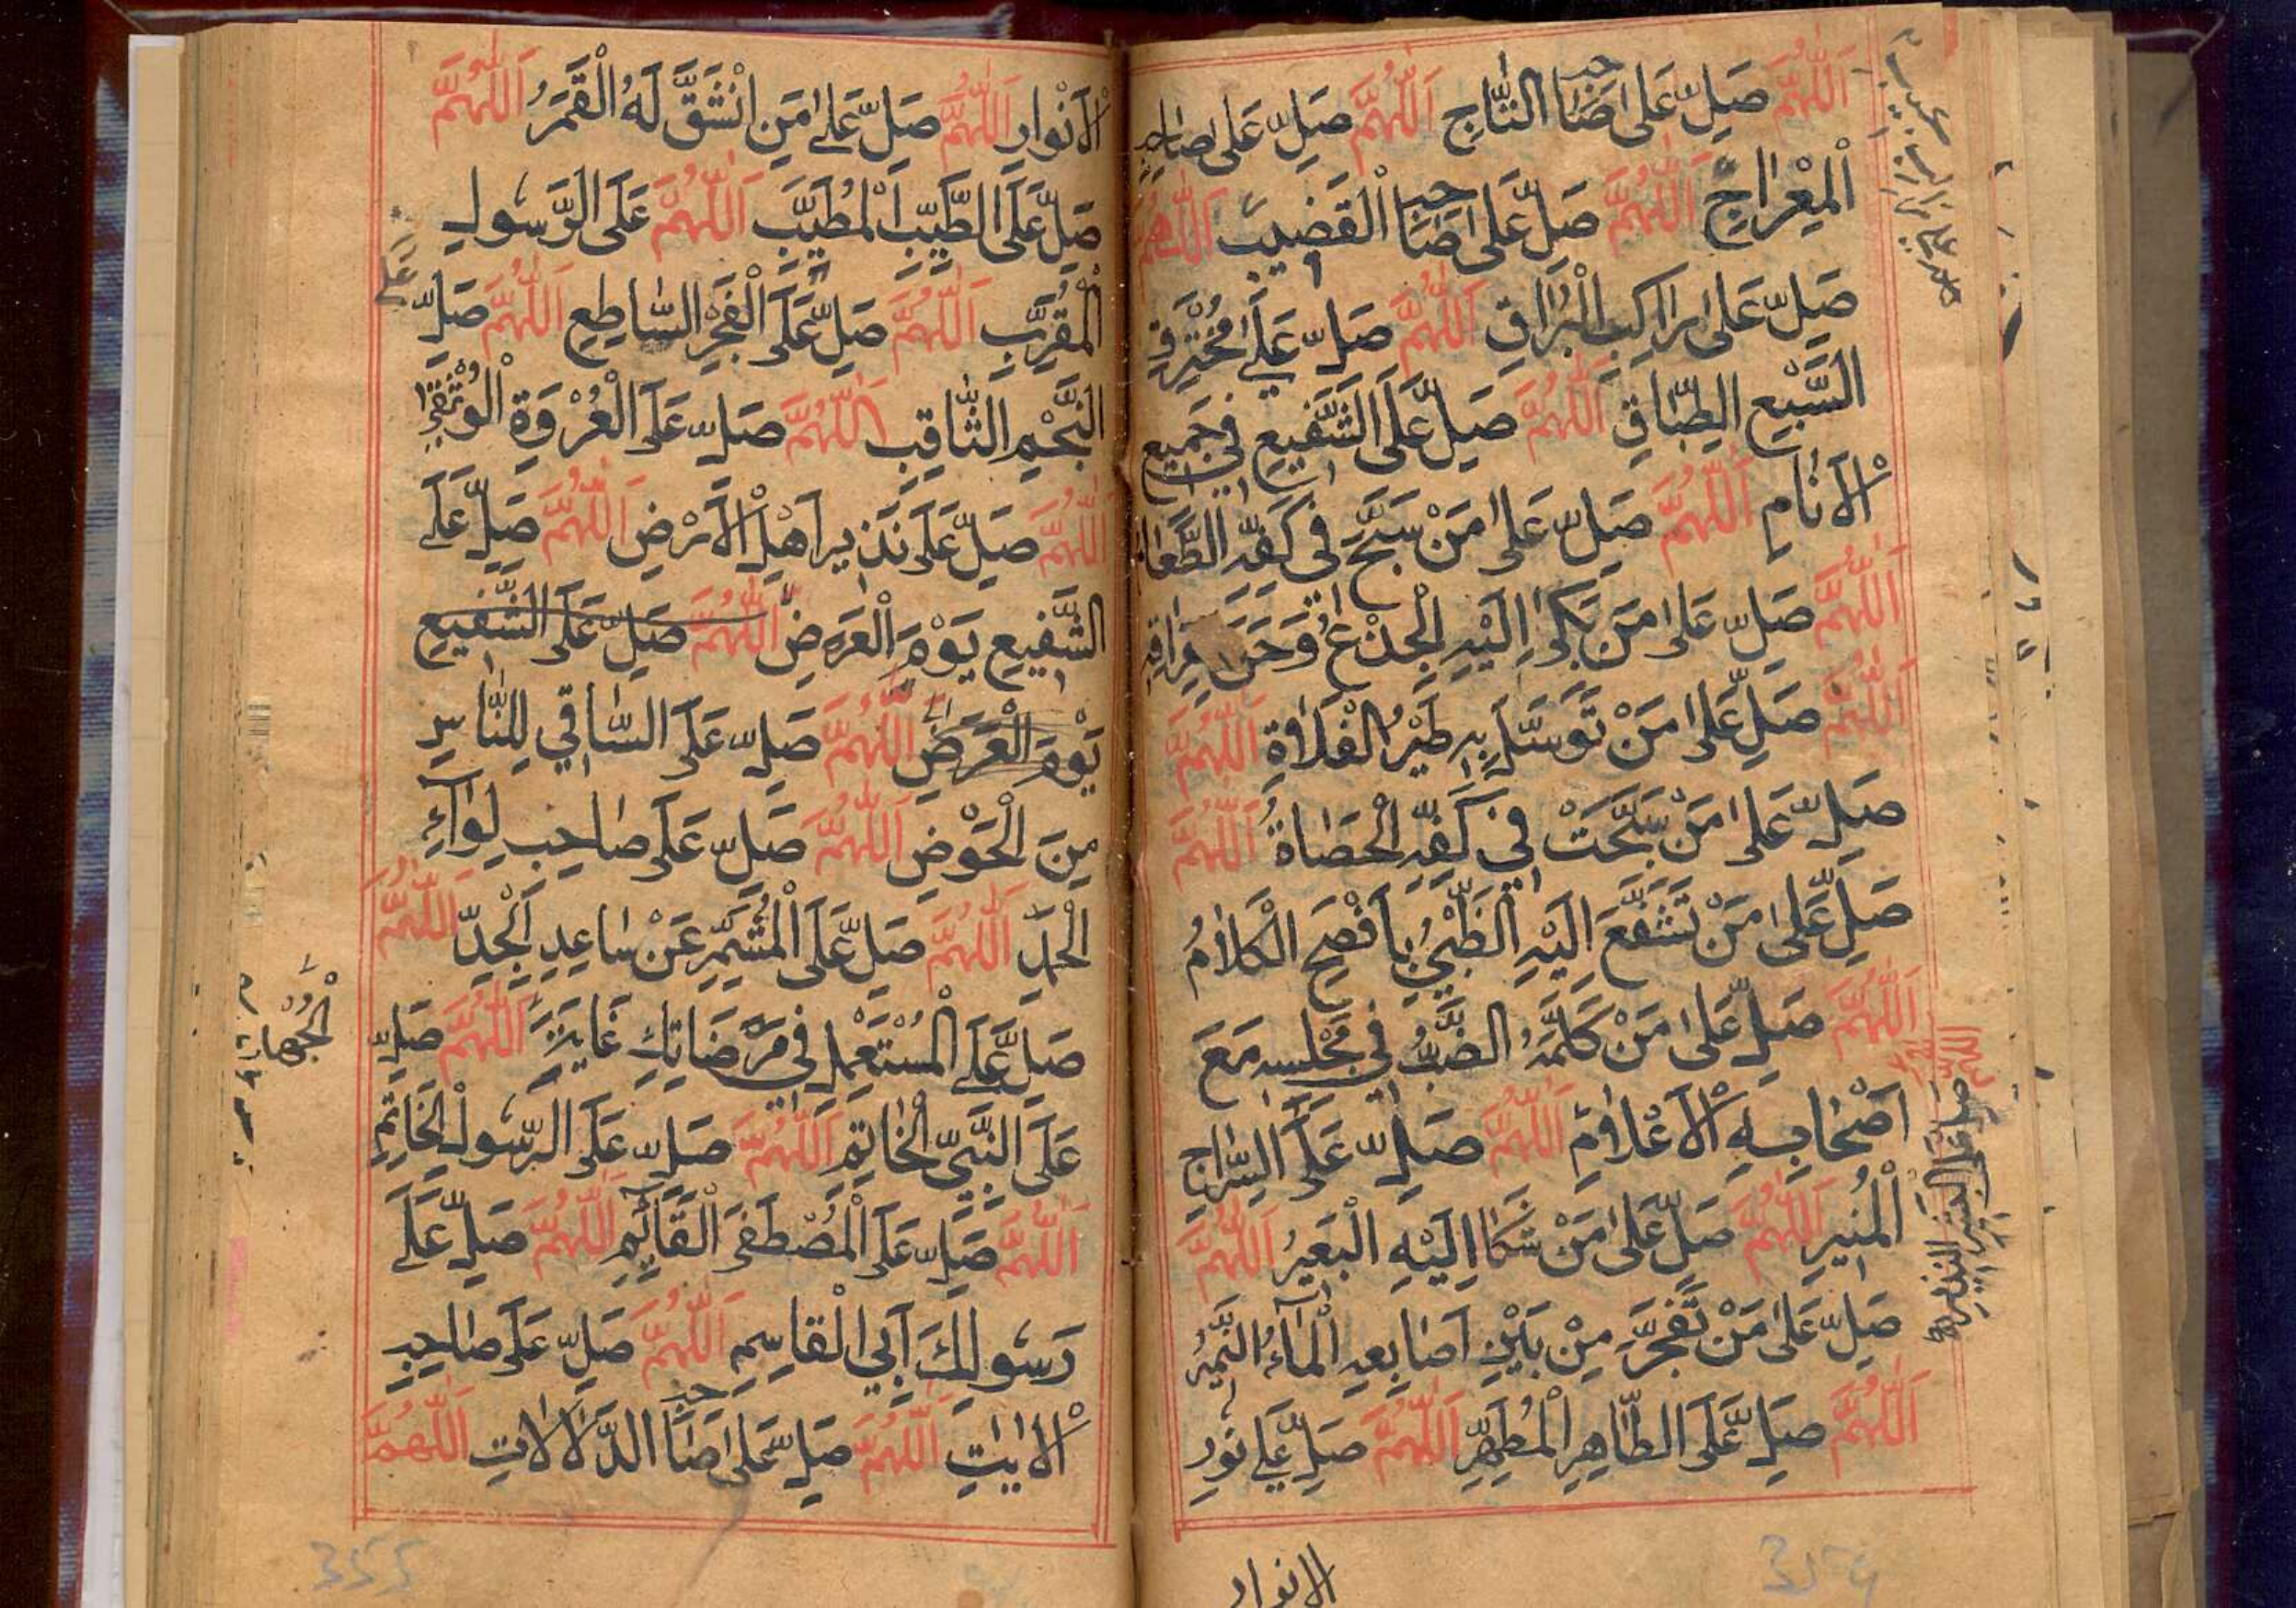 اَللّٰهُمَّ صَلِّ عَلٰى صَاحِبِ التَّاجِ اَللّٰهُمَّ صَلِّ عَلٰى صَاحِبِ
الْمِعْرَاجِ اَللّٰهُمَّ صَلِّ عَلٰى صَاحِبِ الْقَضِيْبِ اَللّٰهُمَّ
صَلِّ عَلٰى رَاكِبِ الْبُرَاقِ اَللّٰهُمَّ صَلِّ عَلٰى مُخْتَرِقِ
السَّبْعِ الطِّبَاقِ اَللّٰهُمَّ صَلِّ عَلَى الشَّفِيْعِ فِيْ جَمِيْعِ
الْاَنَامِ اَللّٰهُمَّ صَلِّ عَلٰى مَنْ سَبَّحَ فِيْ كَفِّهِ الطَّعَامُ
اَللّٰهُمَّ صَلِّ عَلٰى مَنْ بَكٰى اِلَيْهِ الْجِذْعُ وَحَنَّ فِرَاقِهِ
اَللّٰهُمَّ صَلِّ عَلٰى مَنْ تَوَسَّلَ بِهِ طَيْرُ الْفَلَاةِ اَللّٰهُمَّ
صَلِّ عَلٰى مَنْ سَبَّحَتْ فِيْ كَفِّهِ الْحَصَاةُ اَللّٰهُمَّ
صَلِّ عَلٰى مَنْ تَشَفَّعَ اِلَيْهِ الظَّبْيُ بِاَفْصَحِ الْكَلَامُ
اَللّٰهُمَّ صَلِّ عَلٰى مَنْ كَلَّمَهُ الضَّبُّ فِيْ مَجْلِسِهِ مَعَ
اَصْحَابِهِ الْاَعْلَامِ اَللّٰهُمَّ صَلِّ عَلَى السِّرَاجِ
الْمُنِيْرِ اَللّٰهُمَّ صَلِّ عَلٰى مَنْ شَكَا اِلَيْهِ الْبَعِيْرُ اَللّٰهُمَّ
صَلِّ عَلٰى مَنْ تَفَجَّرَ مِنْ بَيْنِ اَصَابِعِهِ الْمَآءُ النَّمِيْرُ
اَللّٰهُمَّ صَلِّ عَلَى الطَّاهِرِ الْمُطَهَّرِ اَللّٰهُمَّ صَلِّ عَلٰى نُوْرِ
اللهم صل على البشير النذير
الانوار
الْاَنْوَارِ اَللّٰهُمَّ صَلِّ عَلٰى مَنِ انْشَقَّ لَهُ الْقَمَرُ اَللّٰهُمَّ
صَلِّ عَلَى الطَّيِّبِ الْمُطَيَّبِ اَللّٰهُمَّ عَلَى الرَّسُوْلِ
الْمُقَرَّبِ اَللّٰهُمَّ صَلِّ عَلَى الْفَجْرِ السَّاطِعِ اَللّٰهُمَّ صَلِّ
النَّجْمِ الثَّاقِبِ اَللّٰهُمَّ صَلِّ عَلَى الْعُرْوَةِ الْوُثْقٰى
اَللّٰهُمَّ صَلِّ عَلٰى نَذِيْرِ اَهْلِ الْاَرْضِ اَللّٰهُمَّ صَلِّ عَلَى
الشَّفِيْعِ يَوْمَ الْعَرْضِ اَللّٰهُمَّ صَلِّ عَلَى الشَّفِيْعِ
يَوْمَ الْعَرْضِ اَللّٰهُمَّ صَلِّ عَلَى السَّاقِيْ لِلنَّاسِ
مِنَ الْحَوْضِ اَللّٰهُمَّ صَلِّ عَلٰى صَاحِبِ لِوَآءِ
الْحَمْدِ اَللّٰهُمَّ صَلِّ عَلَى الْمُشَمِّرِ عَنْ سَاعِدِ الْجِدِّ اَللّٰهُمَّ
صَلِّ عَلَى الْمُسْتَعْمِلِ فِيْ مَرْضَاتِكَ غَايَةَ اَللّٰهُمَّ صَلِّ
عَلَى النَّبِيِّ الْخَاتِمِ اَللّٰهُمَّ صَلِّ عَلَى الرَّسُوْلِ الْخَاتِمِ
اَللّٰهُمَّ صَلِّ عَلَى الْمُصْطَفَى الْقَآئِمِ اَللّٰهُمَّ صَلِّ عَلٰى
رَسُوْلِكَ اَبِي الْقَاسِمِ اَللّٰهُمَّ صَلِّ عَلٰى صَاحِبِ
الْاٰيٰتِ اَللّٰهُمَّ صَلِّ عَلٰى صَاحِبِ الدَّلَالَاتِ اَللّٰهُمَّ
على
355